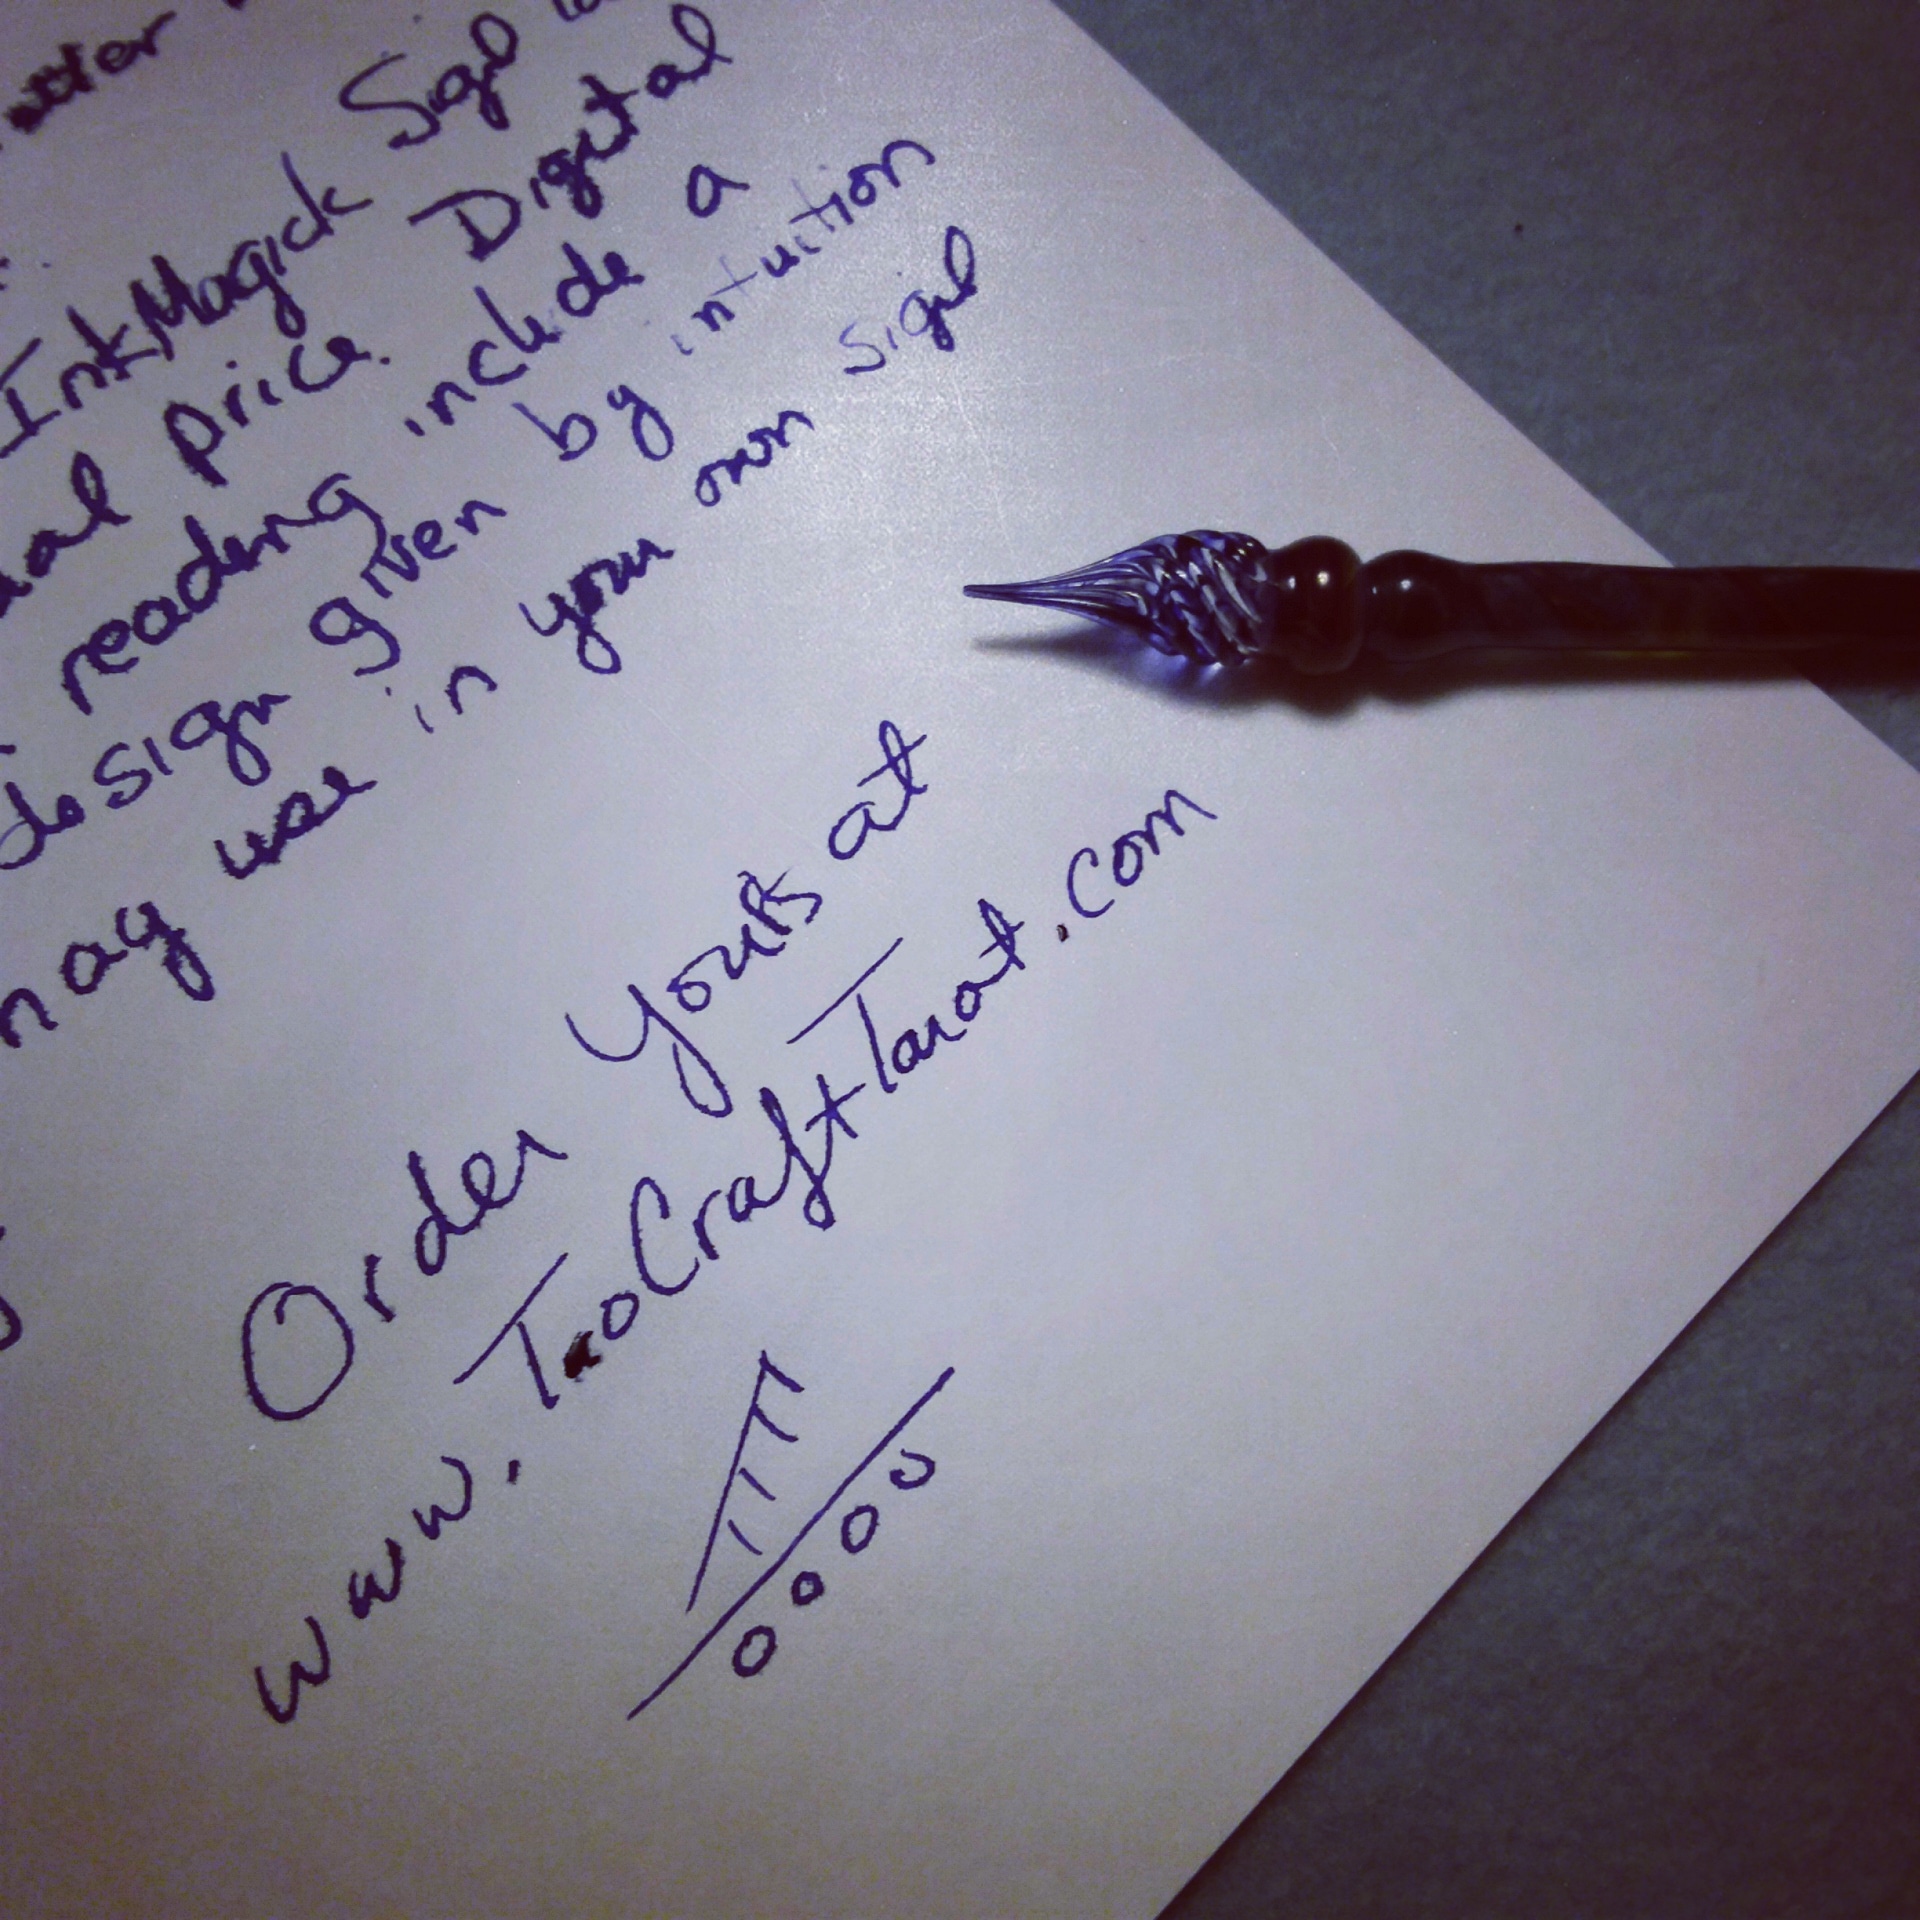 InkMagick Sigil
price. Digital
reading include a
design given by intuition
may use in your own sigil
Order yours at
www.TaoCraftTarot.com